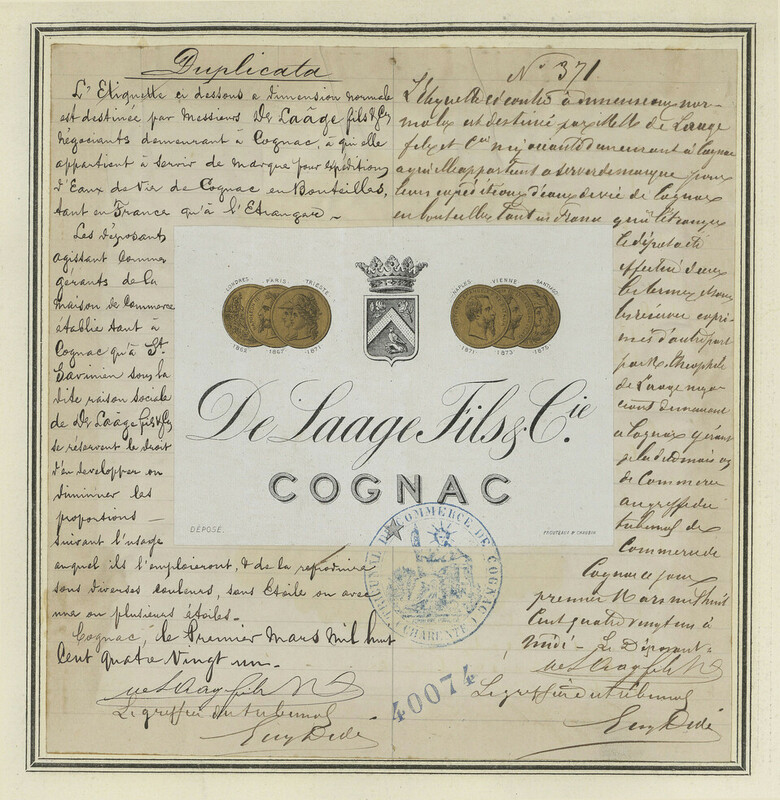 Duplicata
L'Etiquette ci dessous a dimension normale
est destinée par Messieurs De Laâge fils & Cie
négociants demeurant à Cognac, à qui elle
appartient à servir de marque pour expéditions
d'Eaux de Vie de Cognac en Bouteilles,
tant en France qu'à l'Etranger ~
Les déposants
agissant comme
gérants de la
maison de Commerce
établie tant à
Cognac qu'à St.
Savinien sous la
dite raison sociale
de De Laâge fils & Cie
se réservent le droit
d'en developper ou
diminuer les
proportions —
suivant l'usage
auquel ils l'emploieront, & de la reproduire
sous diverses couleurs, sans Etoile ou avec
une ou plusieurs étoiles.
Cognac, le Premier Mars Mil huit
Cent quatre Vingt un.
Le greffier du tribunal
Eug Dedé
No 371
L'étiquette ci contre à dimensions nor-
males est destinée par MM. de Laage
fils et Cie négociants demeurant à Cognac
à qui elle appartient à servir de marque pour
leurs expéditions d'eaux de vie de Cognac
en bouteilles tant en France qu'à l'étranger
le dépot a été
effectué dans
les termes & sous
les réserves expri-
més d'autre part
par M. Théophile
de Laage négo-
ciant demeurant
à Cognac gérant
de la dite maison
de Commerce
au greffe du
tribunal de
Commerce de
Cognac ce jour
premier Mars mil huit
Cent quatre vingt un à
midi - Le Déposant -
Le greffier du tribunal
Eug Dedé
LONDRES PARIS TRIESTE
1862 1867 1871
NAPLES VIENNE SANTIAGO
1871 1873 1875
De Laage Fils & Cie.
COGNAC
DÉPOSÉ.
TRIBUNAL DE COMMERCE DE COGNAC
(CHARENTE)
40074